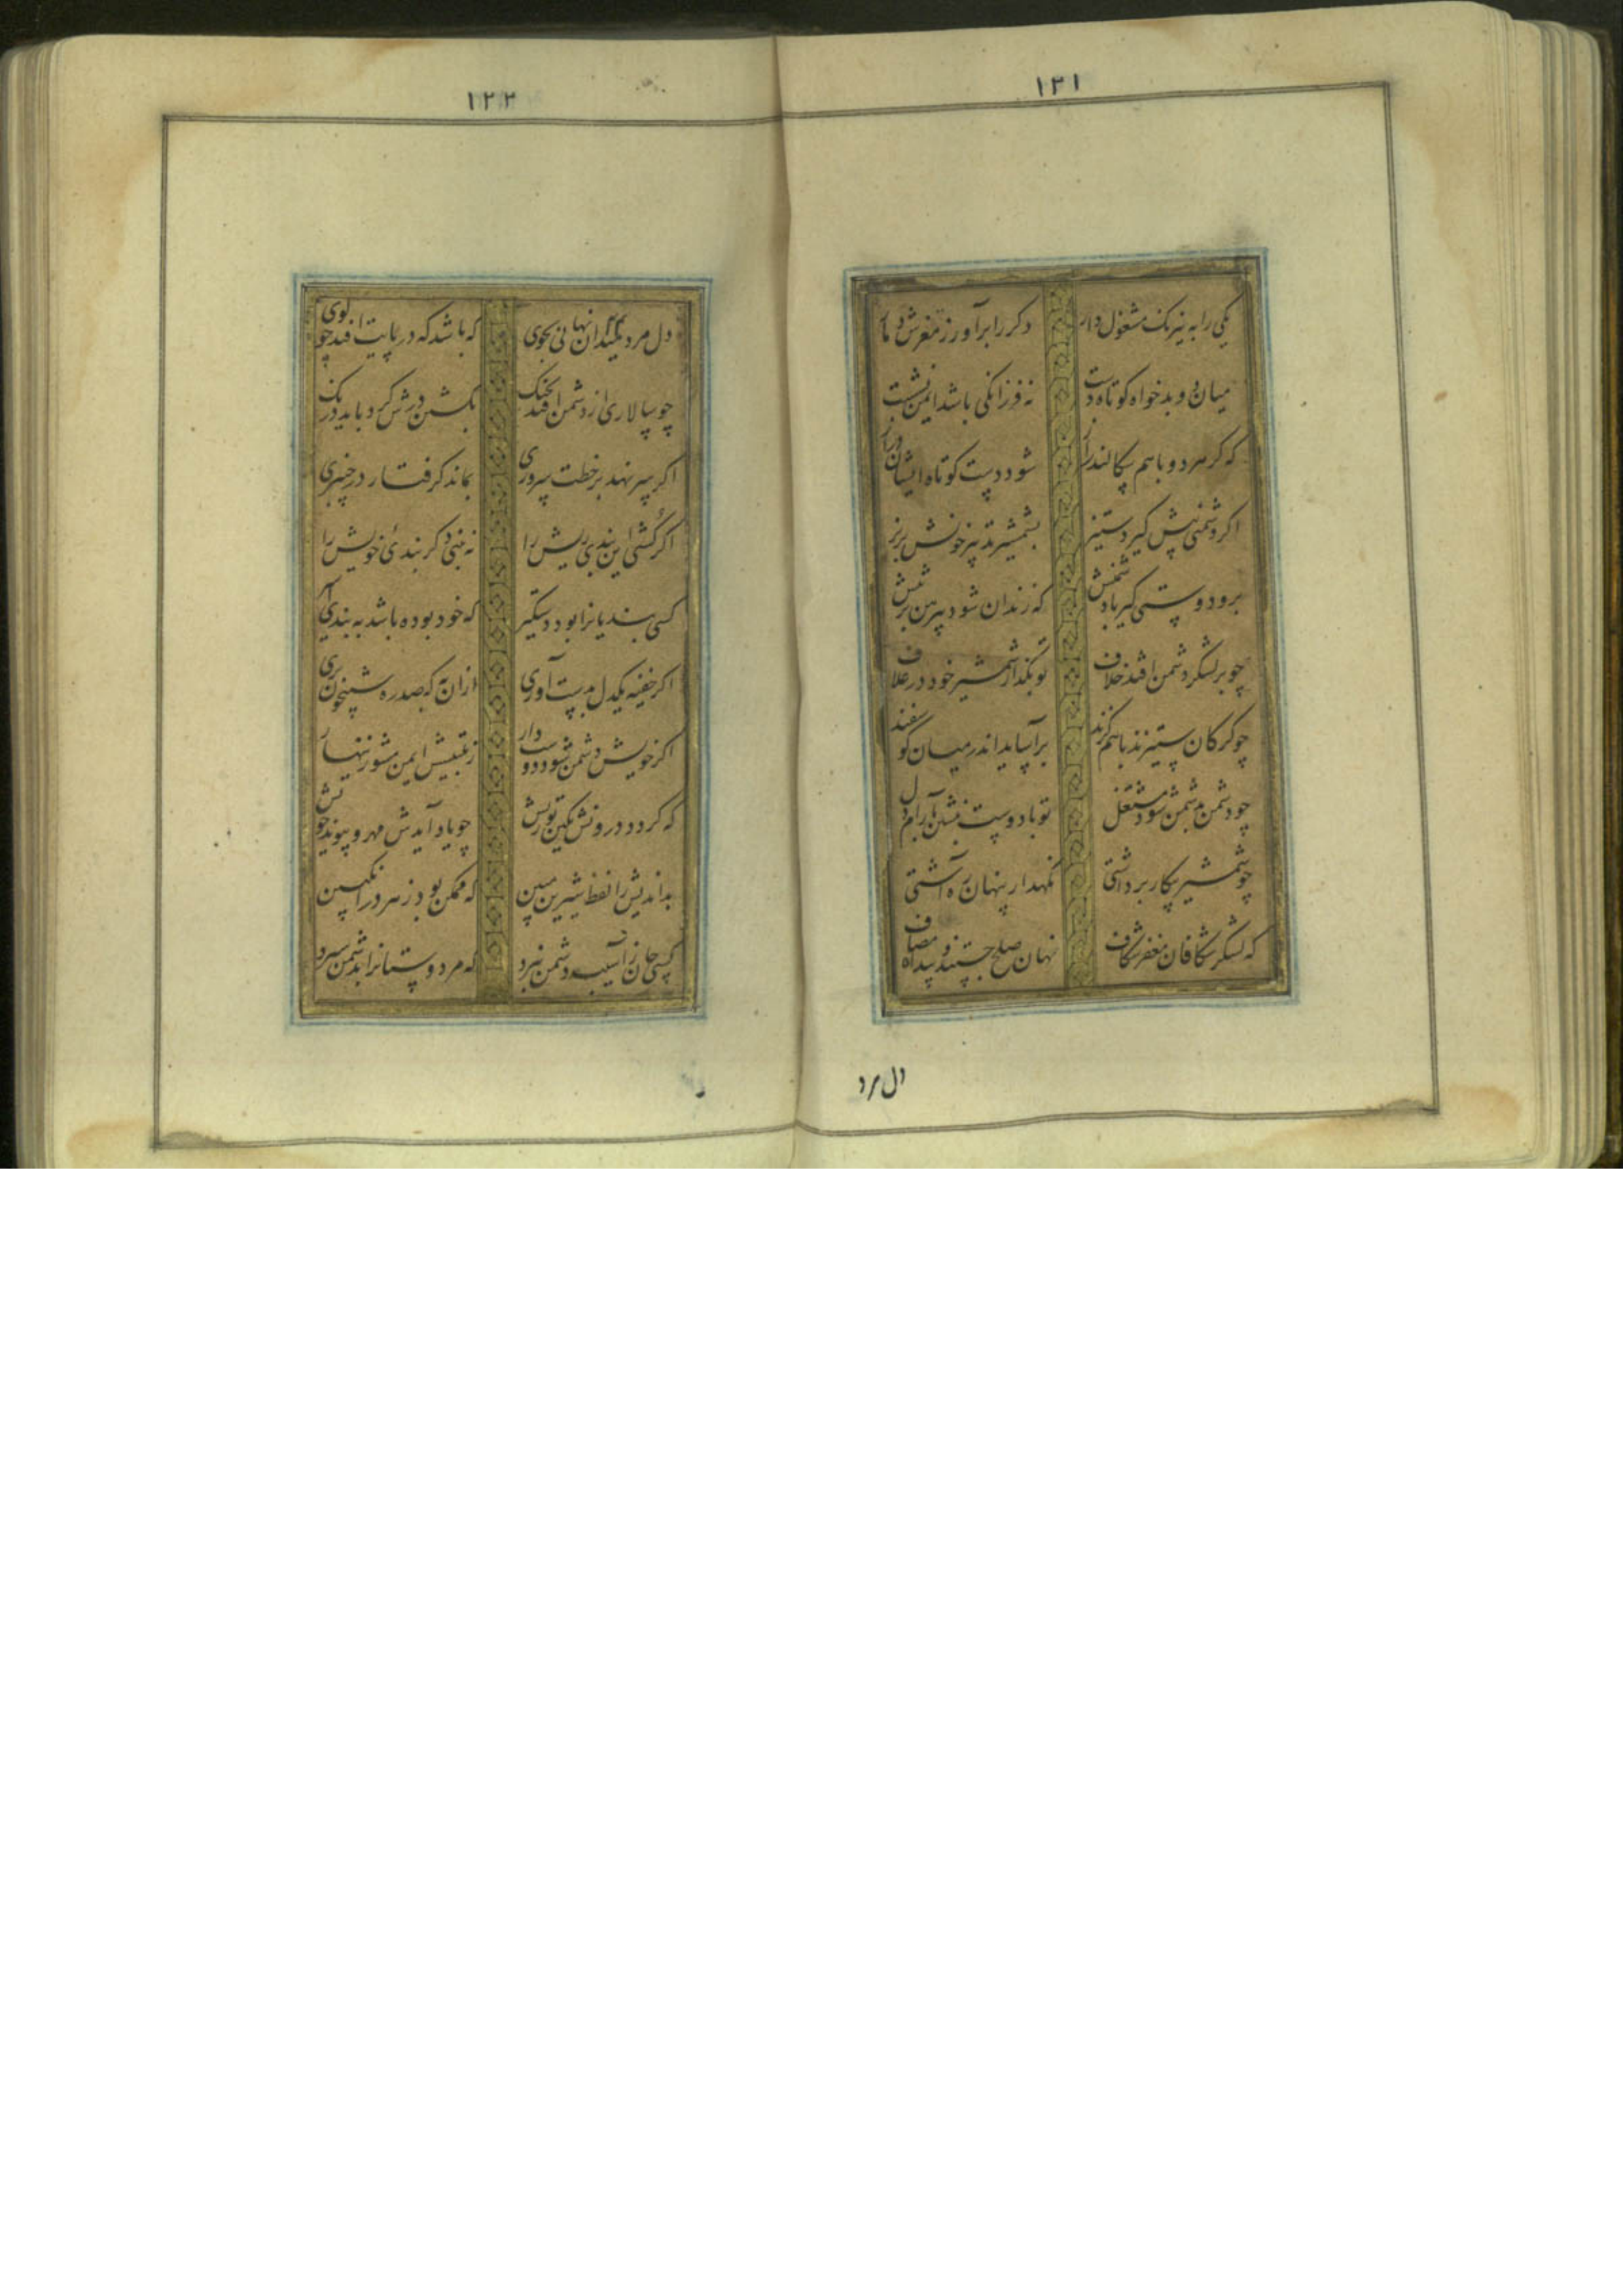 ۱۲۱
یکی را به نیرنک مشغول دار دکر را برآور ز مغزش دمار
میان دو بدخواه کوتاه دست نه فرزانکی باشد ایمن نشست
که کر هر دو باهم سکالند راز شود دست کوتاه ایشان دراز
اکر دشمنی پیش کیرد ستیز بشمشیر تدبیر خونش بریز
برو دوستی کیر با دشمنش که زندان شود پیرهن بر تنش
چو بر لشکر دشمن افتد خلاف تو بگذار شمشیر خود در غلاف
چو کرکان ستیزند باهم کزند برآساید اندر میان کوسفند
چو دشمن بدشمن شود مشتغل تو با دوست بنشین بآرام دل
چو شمشیر پیکار برداشتی نکهدار پنهان ره آشتی
که لشکر شکافان مغفر شکاف نهان صلح جستند و پیدا مصاف
دل مرد
۱۲۲
دل مرد میدان نهانی بجوی که باشد که در پایت افتد چو کوی
چو سالاری از دشمن افتد بچنک بکشتن درش کرد باید درنک
اکر سر نهد بر خطت سروری بماند کرفتار در چنبری
اکر کشتی این بندی ریش را نه بینی دکر بندئ خویش را
کسی بندیانرا بود دستکیر که خود بوده باشد به بندی اسیر
اکر خفیه یکدل بدست آوری ازان به که صد ره شبیخون بری
اکر خویش دشمن شود دوستدار ز تلبیسش ایمن مشو زینهار
که کردد درونش بکین تو ریش چو یاد آیدش مهر و پیوند خویش
بداندیش را لفظ شیرین مبین که ممکن بود زهر در انکبین
کسی جان ز آسیب دشمن ببرد که مر دوستانرا بدشمن سپرد